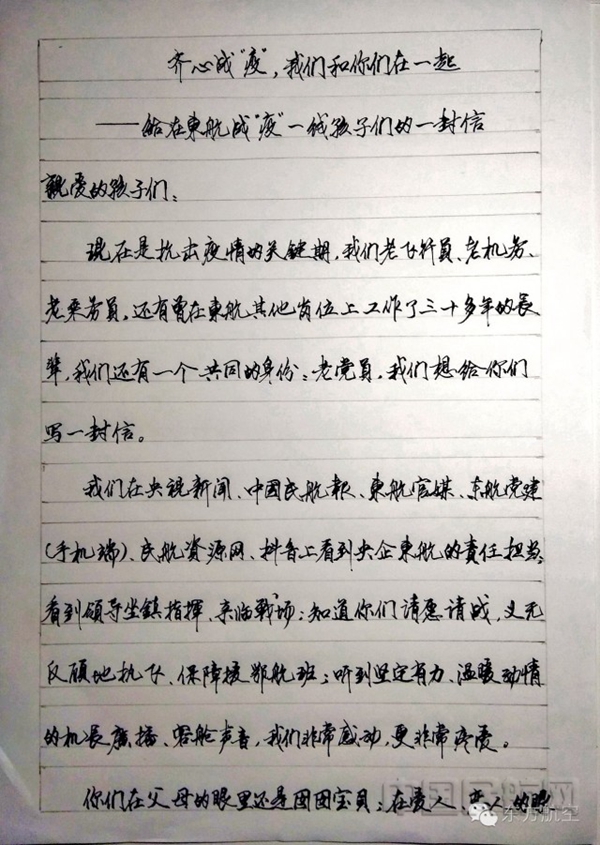 齐心战“疫”，我们和你们在一起
——给在東航战“疫”一线孩子们的一封信
親爱的孩子们：
现在是抗击疫情的关键期，我们老飞行員、老机务、
老乘务員，还有曾在東航其他岗位上工作了三十多年的長
辈，我们还有一个共同的身份：老党員，我们想给你们
写一封信。
我们在央视新闻、中國民航報、東航官媒、东航党建
（手机端）、民航資源网、抖音上看到央企東航的責任担当，
看到領导坐鎮指揮、亲临戰场；知道你们请愿请战，义无
反顾地执飞、保障援鄂航班；听到坚定有力、温暖动情
的机長廣播、客舱声音，我们非常感动，更非常疼爱。
你们在父母的眼里还是囡囡宝贝；在爱人、恋人的
东方航空